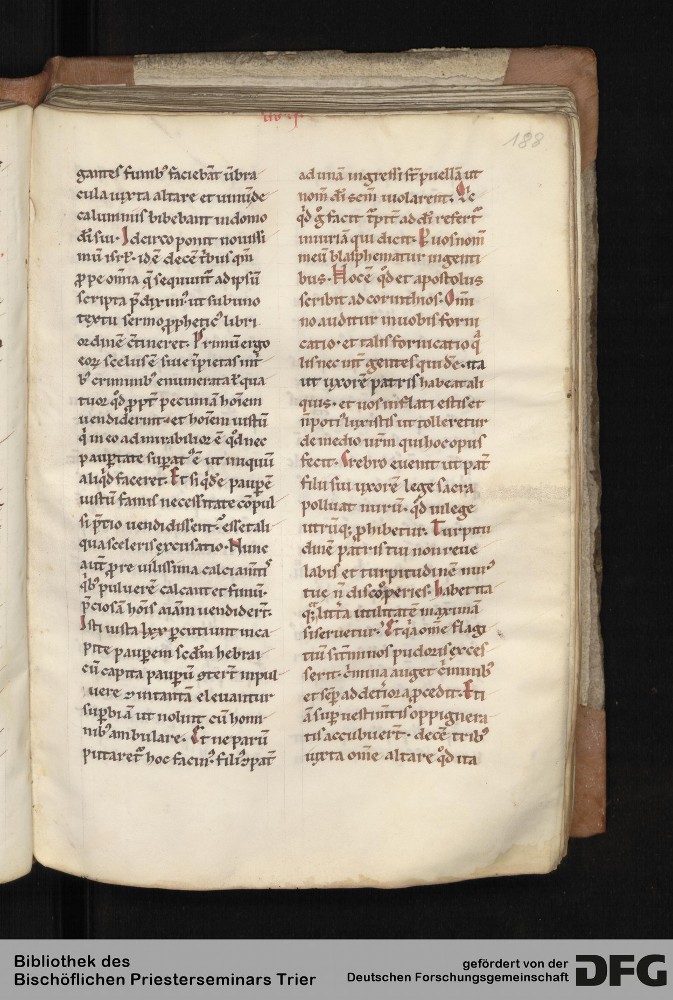 188
gantes funib᷒ faciebāt ūbra
cula iuxta altare et uinū de
calumniis bibebant in domo
dī sui. Idcirco ponit nouissi
mū isrl̄. id ē decē tb᷒us qm̄
ꝓpe om̄ia q̄ sequunt̄ ad ipsū
scripta p̄diximꝰ. ut sub uno
textu sermo ꝓphetic᷒ libri
ordinē c̄tineret. Primū ergo
eoꝝ scelus ē siue īpietas int̄
b᷒ criminib᷒ enumerata
tuor qd̄ ꝓpt̄ pecuniā hoīem
uendiderint. et hoīem iustū
q̄ in eo admirabilior ē qd̄ nec
paup̄tate sup̄atꝰ ē ut iniquū
aliqd̄ faceret. Et si qd̄ē paup̄ē
iustū famis necessitate cōpul
si p̄tio uendidissent. esset ali
qua sceleris excusatio. Nunc
aut̄ p̄ re uilissima calciamti᷒
qb᷒ puluerē calcant et fimū.
p̄ciosā hoīs aīam uendidert̄.
Isti iuxta lxx percutiunt in ca
pite pauperem scdm̄ hebrai
cū capita paupū ꝯterunt in pul
uere ⁊ in tantā eleuantur
supbiā ut nolint cū homi
nib᷒ ambulare. Et ne parū
putaret᷒ hoc facin᷒. filiꝰ ⁊ pat̄
ad unā ingressi st̄ puellā ut
nom̄ dī scm̄ uiolarent.
qd̄ facit ad dī refert̄
iniuriā qui dicit. P uos nom̄
meū blasphematur in genti
bus. Hoc ē qd̄ et apostolus
scribit ad corinthios. Om̄i
no auditur in uobis forni
catio. et talis fornicatio q̄
lis nec int̄ gentes quidē. ita
ut uxorē patris habeat ali
quis. et uos inflati estis et
n̄ poti᷒ luxistis ut tolleretur
de medio ur̄m qui hoc opus
fecit. Crebro euenit ut pat̄
filii sui uxorē lege sacra
polluat nurū. qd̄ in lege
utrūq; ꝓhibetur. Turpitu
dinē patris tui non reue
labis et turpitudinē nur᷒
tue n̄ discoꝑies. Habet ita
litt̄a utilitatē maximā
si seruetur. Et qa om̄e flagi
tiū sit minos pudoris exces
serit. c̄mina auget c̄minib᷒
et semp̄ ad det̄iora ꝓcedit. Eti
ā sup uestim̄tis oppignera
tis accubuert̄. decē trib᷒
iuxta om̄e altare qd̄ ita
Bibliothek des
Bischöflichen Priesterseminars Trier
gefördert von der
Deutschen Forschungsgemeinschaft
DFG